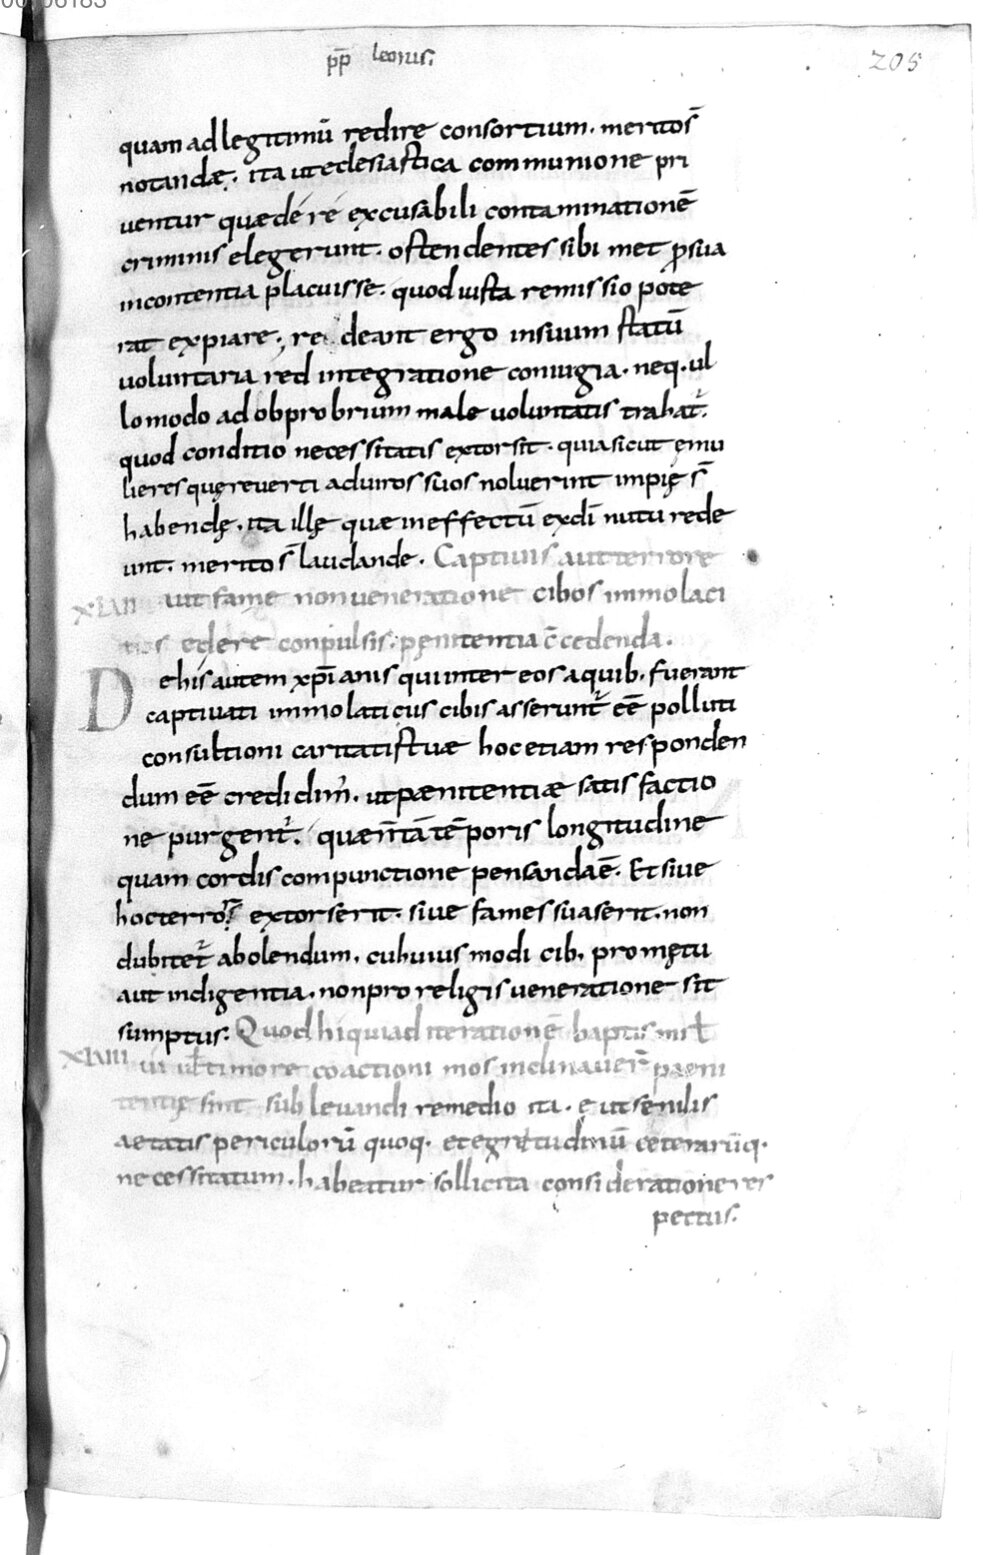 pp̄ leonis.
205
quam ad legitimū redire consortium. meritos̄
notandæ. ita ut eclesiastica communione pri
uentur quæ de re excusabili contaminationē
criminis elegerunt. ostendentes sibi met p̄ sua
incontentia placuisse. quod iusta remissio pote
rat expiare. redeant ergo in suum statū
voluntaria redintegratione coniugia. neq. ul
lo modo ad obprobrium male uoluntatis trahat̄.
quod conditio necessitatis extorsit. quia sicut ęmu
lieres quę reuerti ad uiros suos noluerint impię s̄
habendę. ita illę quæ in effectū ex dī nutu rede
unt. merito s̄ laudande. Captiuis aut terrore
XLVII aut fame non ueneratione cibos immolaci
tios edere conpulsis. pęnitentia c̄cedenda.
De his autem xp̄ianis qui inter eos a quib. fuerant
captiuati immolaticiis cibis asserunt̄ eē polluti
consultioni caritatis tuæ hoc etiam responden
dum eē credidim̄. ut pænitentiæ satisfactio
ne purgent̄. quæ n̄ tā tē poris longitudine
quam cordis compunctione pensanda ē. Et siue
hoc terror extorserit. siue fames suaserit. non
dubitet̄ abolendum. cuhuius modi cib. pro mętu
aut indigentia. non pro religis ueneratione sit
sumptus. Quod hi qui ad iterationē baptismi ł
XLVIII ui ł timore coacti oni mos inclinauer̄ paeni
tentię sint subleuandi remedio ita. ę ut senilis
aetatis periculorū quoq. et egritudinū ceterarūq.
necessitatum. habeatur sollicita consideratione res
pectus.